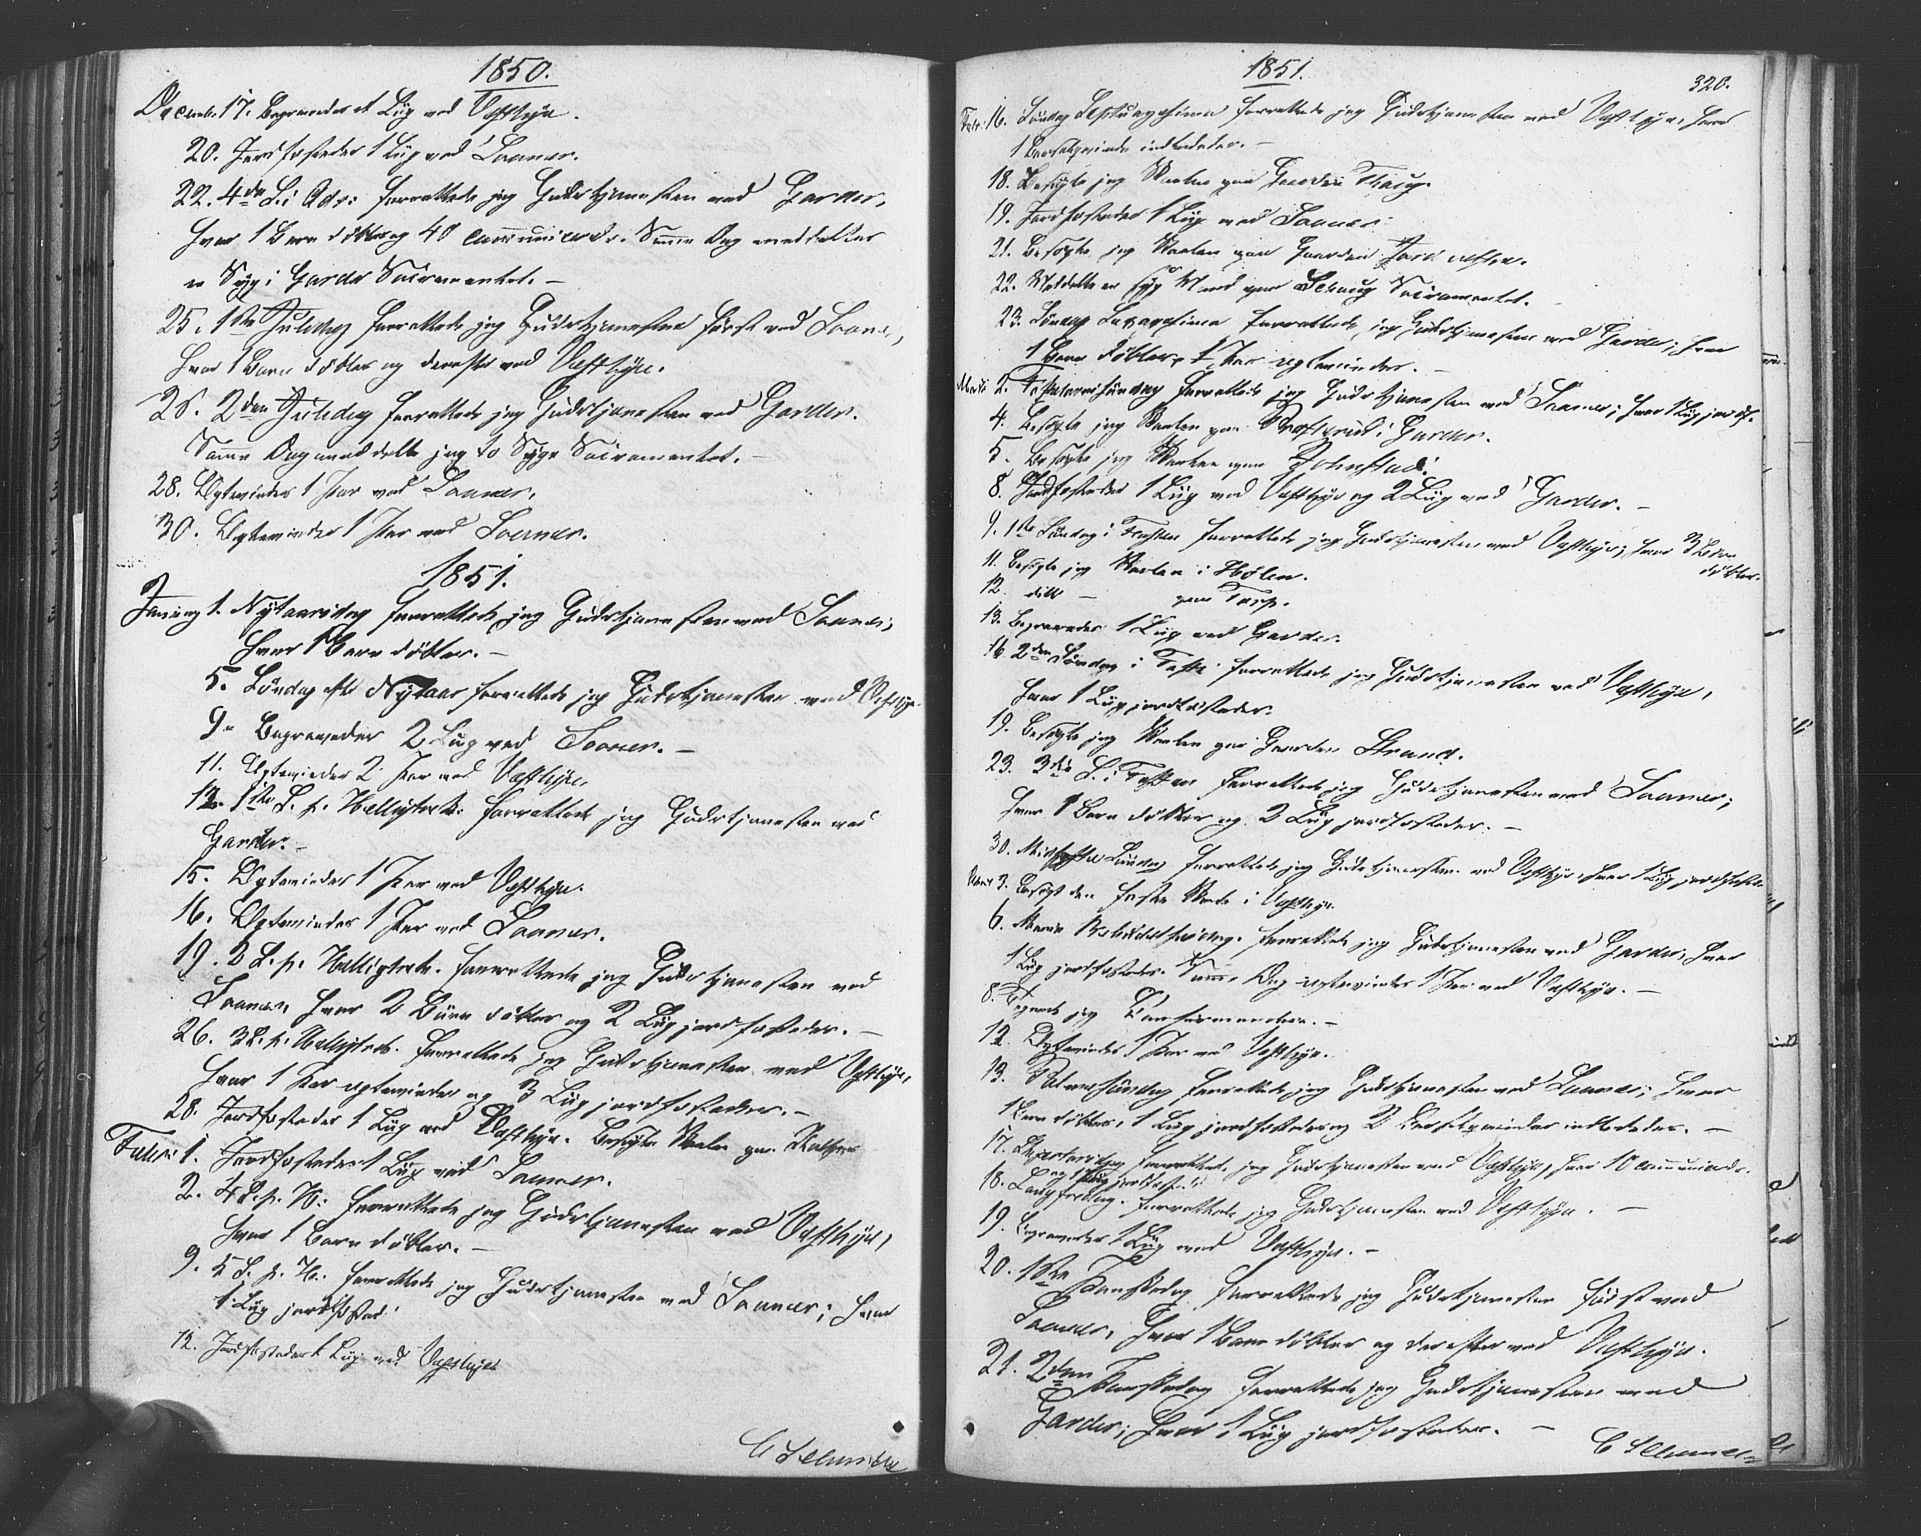 1850.
Decemb. 17. Begravedes et Liig ved Vestbye.
20. Jordfæstedes 1 Liig ved Saaner.
22. 4de S. i Adv: forrettede jeg Gudstjenesten ved Garder,
hvor 1 Barn døbtes og 40 communicerede. Samme Dag meddeltes
en Syg i Garder Sacramentet. —
25. 1ste Juledag forrettede jeg Gudstjenesten først ved Saaner,
hvor 1 Barn døbtes og derefter ved Vestbye.
26. 2den Juledag forrettede jeg Gudstjenesten ved Garder.
Samme Dag meddelte jeg to Syge Sacramentet. —
28. Egteviedes 1 Par ved Saaner.
30. Egteviedes 1 Par ved Saaner.
1851.
Januar 1. Nytaarsdag forrettede jeg Gudstjenesten ved Saaner,
hvor 1 Barn døbtes. —
5. Søndag efter Nytaar forrettede jeg Gudstjenesten ved Vestbye.
9. Begravedes 2 Liig ved Saaner. —
11. Egteviedes 2 Par ved Vestbye.
12. 1ste S. p. Helligtrek: forrettede jeg Gudstjenesten ved
Garder. —
15. Egteviedes 1 Par ved Vestbye.
16. Egteviedes 1 Par ved Saaner.
19. 2 S. p. Helligtrek. forrettede jeg Gudstjenesten ved
Saaner, hvor 2 Børn døbtes og 2 Liig jordfæstedes. —
26. 3 S. p. Helligtrek. forrettede jeg Gudstjenesten ved Vestbye,
hvor 1 Par egteviedes og 3 Liig jordfæstedes. —
28. Jordfæstedes 1 Liig ved Vestbye. Besøgte Skolen paa
Febr: 1. Jordfæstedes 1 Liig ved Saaner.
2. 4 S. p. H: forrettede jeg Gudstjenesten ved Vestbye,
hvor 1 Barn døbtes. —
9. 5 S. p. H. forrettede jeg Gudstjenesten ved Saaner; hvor
1 Liig jordfæstedes
12. Jordfæstedes 1 Liig ved Vestbye
C Schmidt
1851.
320.
Febr. 16. Søndag Septuagesima forrettede jeg Gudstjenesten ved Vestbye, hvor
1 Barselqvinde indlededes. —
18. Besøgte jeg Skolen paa Gaarden
19. Jordfæstedes 1 Liig ved Saaner.
21. Besøgte jeg Skolen paa Gaarden
22. Meddelte en syg Mand paa Sacramentet. —
23. Søndag Sexagesima forrettede jeg Gudstjenesten ved Garder, hvor
1 Barn døbtes, 1 Par egteviedes. —
Marts 2. Fastelavnssøndag forrettede jeg Gudstjenesten ved Saaner; hvor 1 Liig jordf.
4. Besøgte jeg Skolen paa i Garder.
5. Besøgte jeg Skolen paa
8. Jordfæstedes 1 Liig ved Vestbye og 2 Liig ved Garder. —
9. 1ste Søndag i Fasten forrettede jeg Gudstjenesten ved Vestbye, hvor 3 Børn
døbtes.
11. Besøgte jeg Skolen i Hølen.
12. ditto — paa
13. Begravedes 1 Liig ved Garder.
16. 2den Søndag i Faste forrettede jeg Gudstjenesten ved Vestbye,
hvor 1 Liig jordfæstedes.
19. Besøgte jeg Skolen paa Gaarden Strand.
23. 3die S. i Fasten forrettede jeg Gudstjenesten ved Saaner;
hvor 1 Barn døbtes og 2 Liig jordfæstedes. —
30. Midfaste Søndag forrettede jeg Gudstjenesten ved Vestbye, hvor 1 Liig jordfæstedes
3. Besøgt den faste Skole i Vestbye.
6. Mariæ Bebudelsesdag. forrettede jeg Gudstjenesten ved Garder, hvor
1 Liig jordfæstedes. Samme Dag egteviedes 1 Par ved Vestbye. —
8. jeg Confirmanderne. —
12. Egteviedes 1 Par ved Vestbye.
13. Palmesøndag forrettede jeg Gudstjenesten ved Saaner; hvor
1 Barn døbtes, 1 Liig jordfæstedes og 2 Barselqvinder indlededes. —
17. Skjertorsdag forrettede jeg Gudstjenesten ved Vestbye, hvor 10 communicerede.
og 1 Liig jordfæstedes
18. Langfredag. forrettede jeg Gudstjenesten ved Vestbye. —
19. Begravedes 1 Liig ved Vestbye. —
20. 1ste Paaskedag forrettede jeg Gudstjenesten først ved
Saaner, hvor 1 Barn døbtes og derefter ved Vestbye.
21. 2den Paaskedag forrettede jeg Gudstjenesten ved
Garder; hvor 1 Liig jordfæstedes. —
C Schmidt